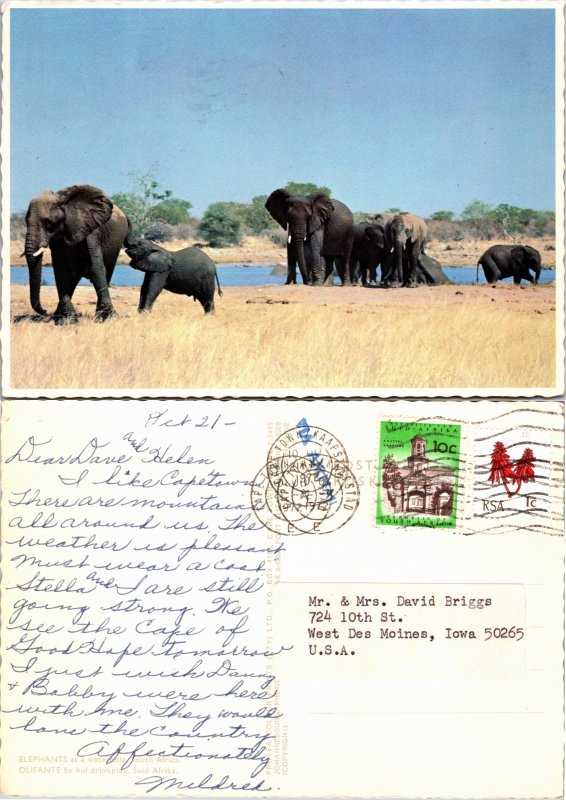 Oct 21-
Dear Dave and Helen
I like Capetown.
There are mountains
all around us. The
weather is pleasant
must wear a coat
Stella and I are still
going strong. We
see the Cape of
Good Hope tomorrow
I just wish Danny
& Bobby were here
with me. They would
love the Country
Affectionately
Mildred.
ELEPHANTS at a waterhole, South Africa.
OLIFANTE by hul drinkplek, Suid Afrika.
(COPYRIGHT)
10c
SOUTH AFRICA
RSA 1c
Mr. & Mrs. David Briggs
724 10th St.
West Des Moines, Iowa 50265
U.S.A.